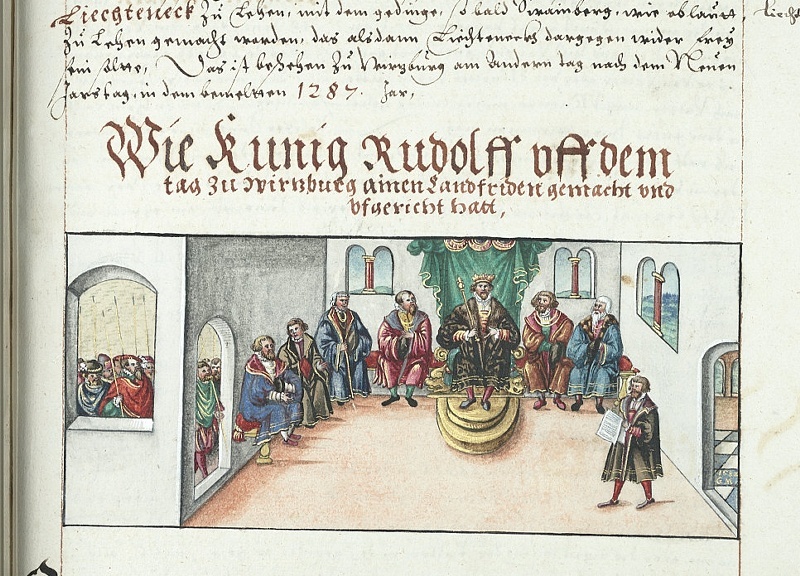 Liechteneck zu Lehen, mit dem gedinge, so bald Swainberg, wie oblautt,
zu Lehen gemacht worden, das alsdann Liechteneck dargegen wider frey
sein solte, Das ist beschehen zu Wirtzburg am Andern tag nach dem Neuen
Jarstag, in dem bemeltten 1287. Jar,
Wie Kunig Rudolff vff dem
tag zu Wirtzburg ainen Landfriden gemacht vnd
vfgericht hatt,